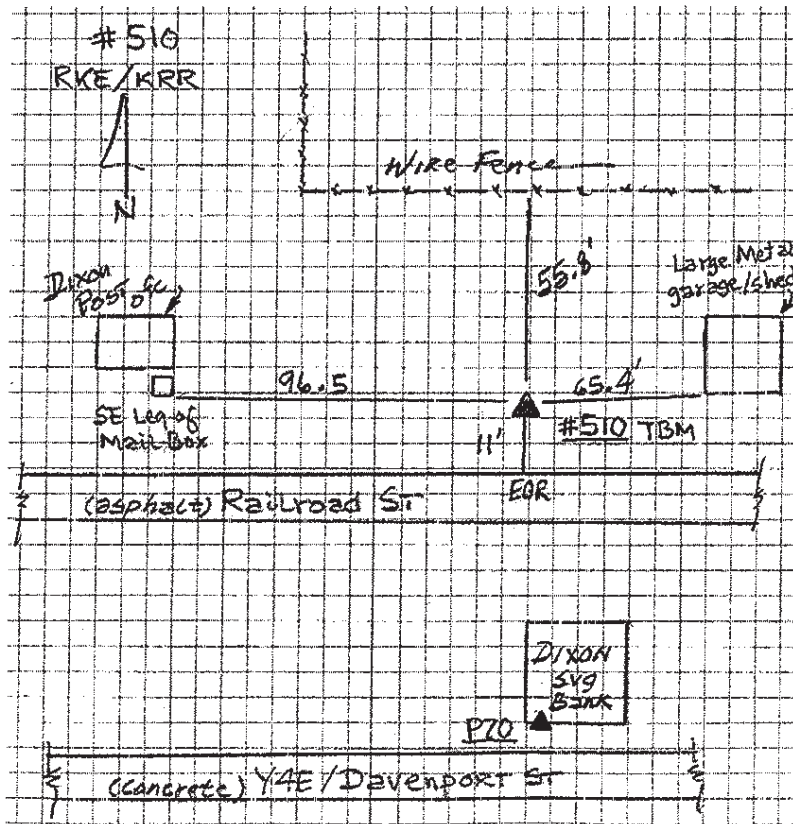 # 510
RKE/KRR
N
Wire Fence
55.8'
Dixon
Post
Large Metal
garage/shed
96.5
65.4'
SE Leg of
Mail Box
#510 TBM
11'
EOR
(asphalt) Railroad ST
DIXON
Svg
Bank
P70
(Concrete) Y4E/Davenport ST